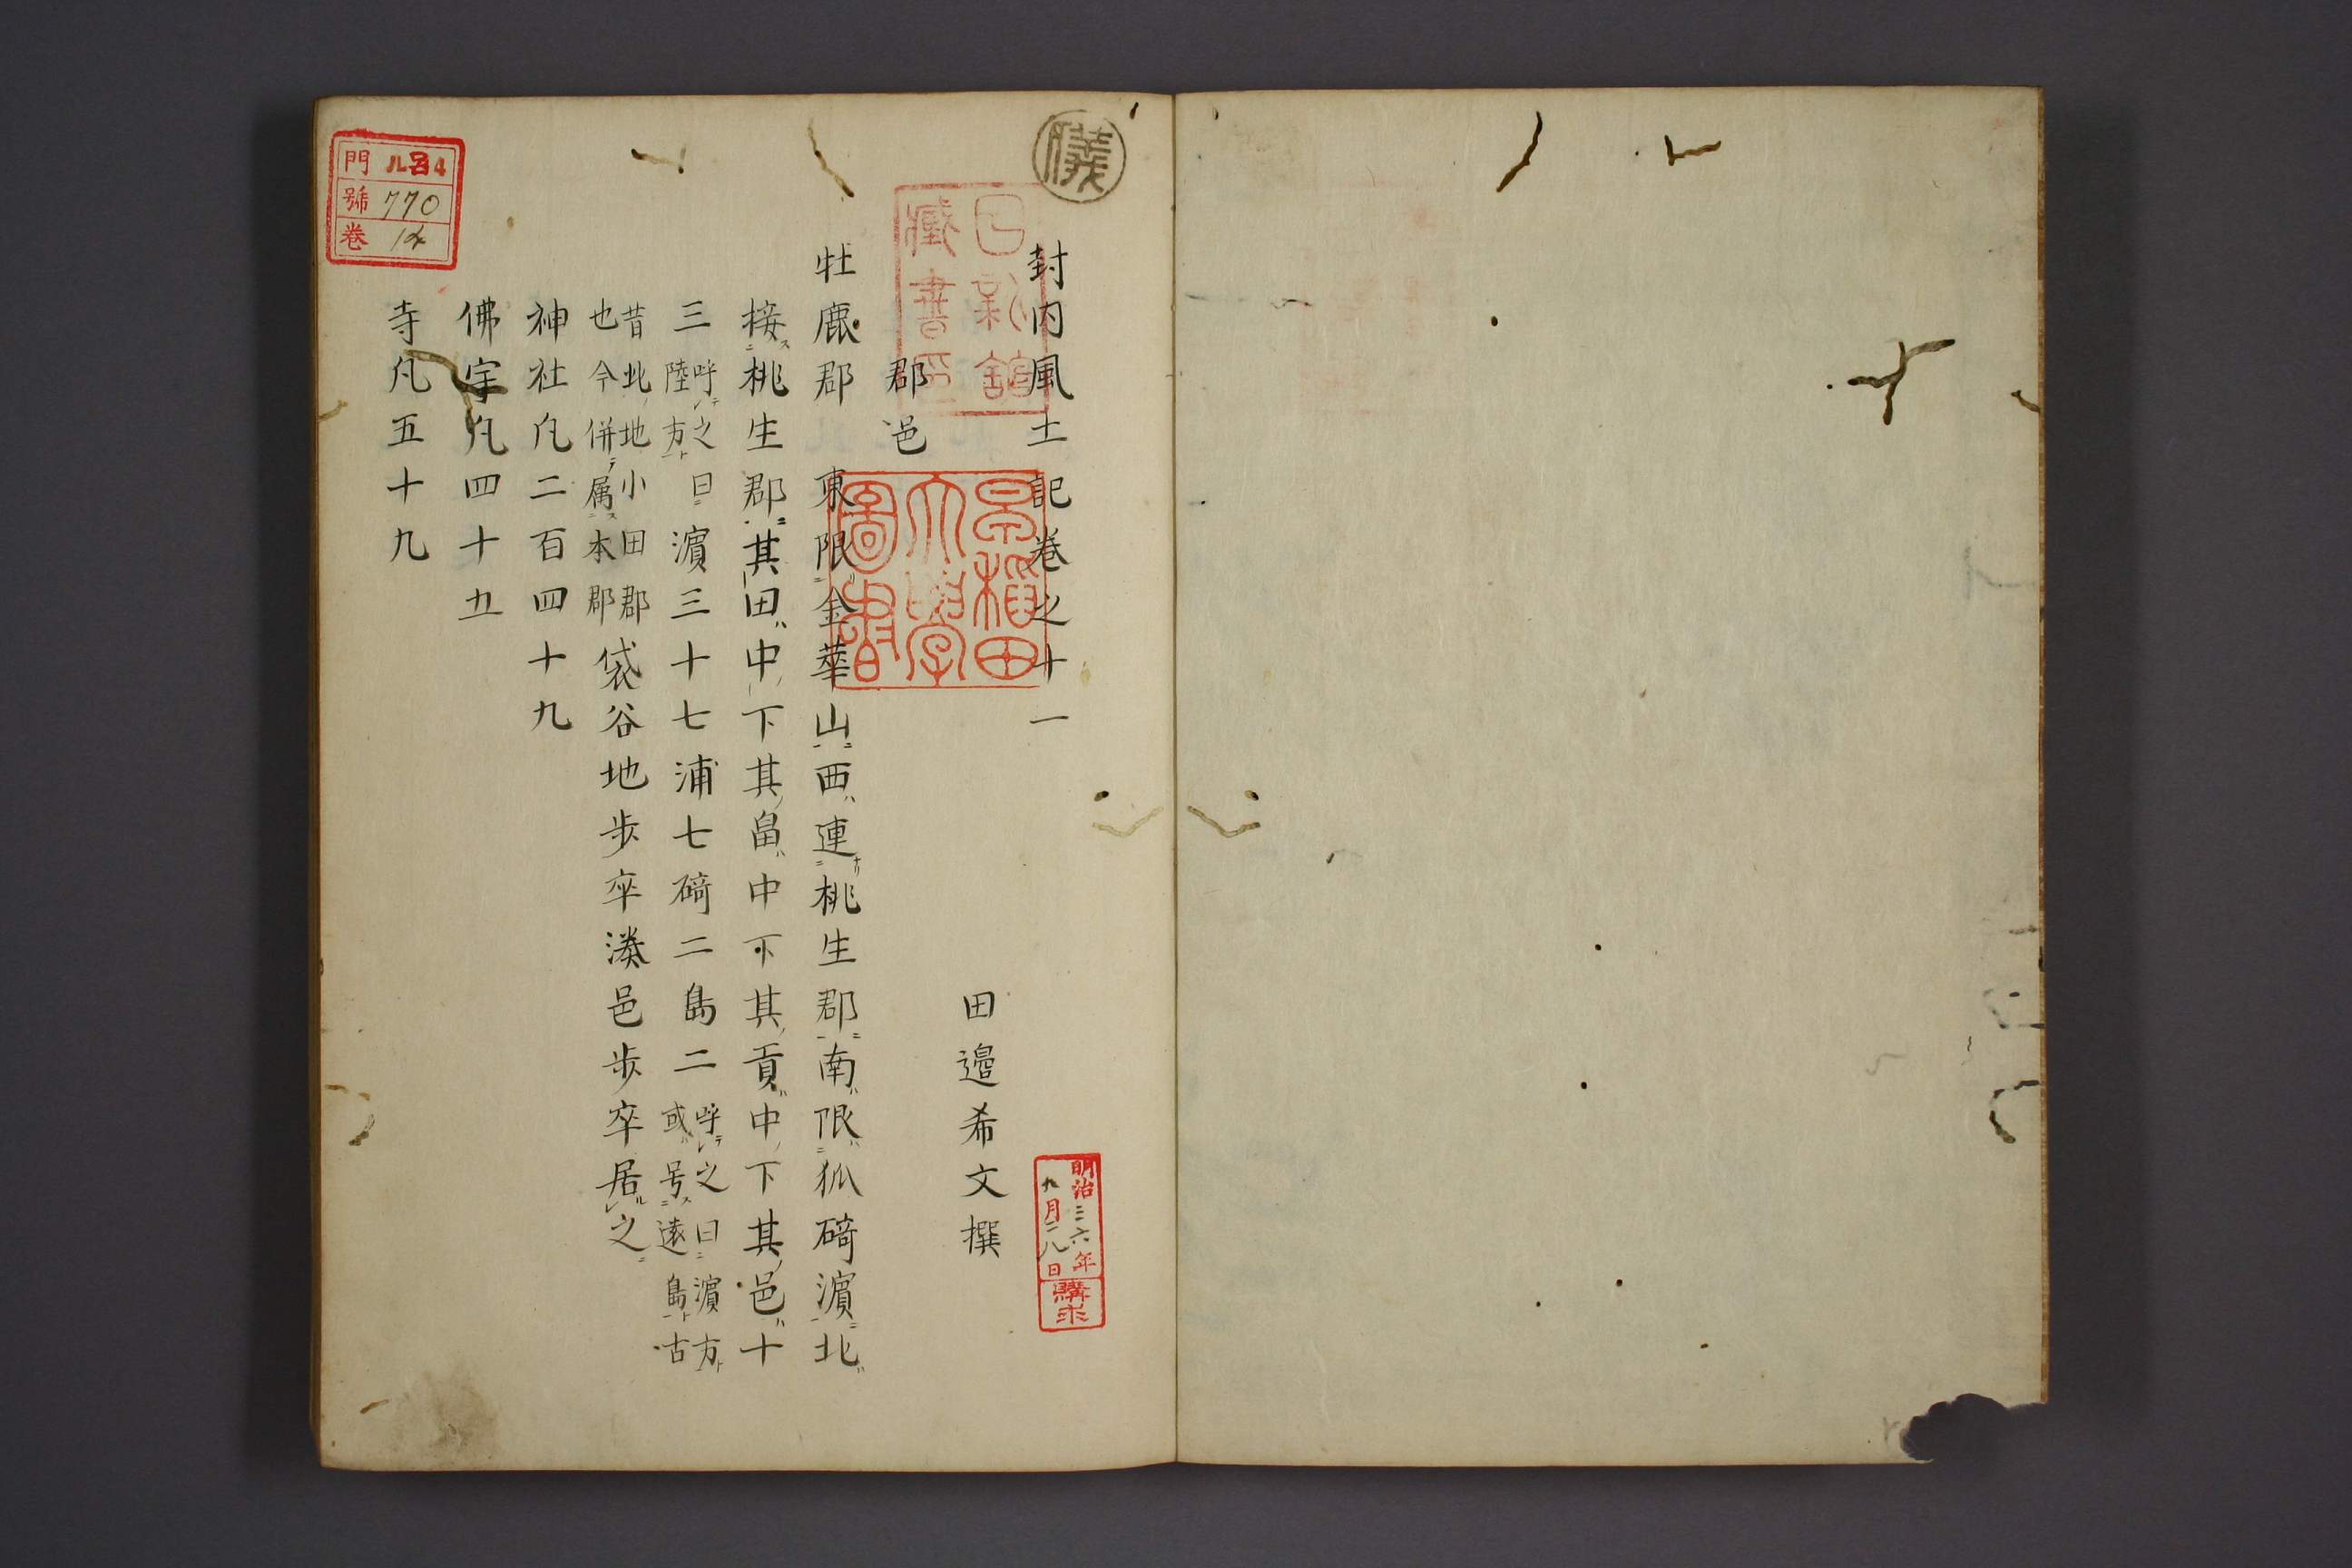 封内風土記卷之十一
田邉希文撰
郡邑
牡鹿郡 東限金華山西連桃生郡南限狐碕濵北
接桃生郡其田中下其畠中下其貢中下其邑十
三呼之曰陸方濵三十七浦七碕二島二呼之曰濵方或号遠島古
昔北地小田郡也今併属本郡袋谷地歩卒湊邑歩卒居之
神社凢二百四十九
佛宇凢四十五
寺凢五十九
門 ル呂4
號 770
卷 12
早稲田大學圖書
藏書印
明治三六年
九月二八日
購求